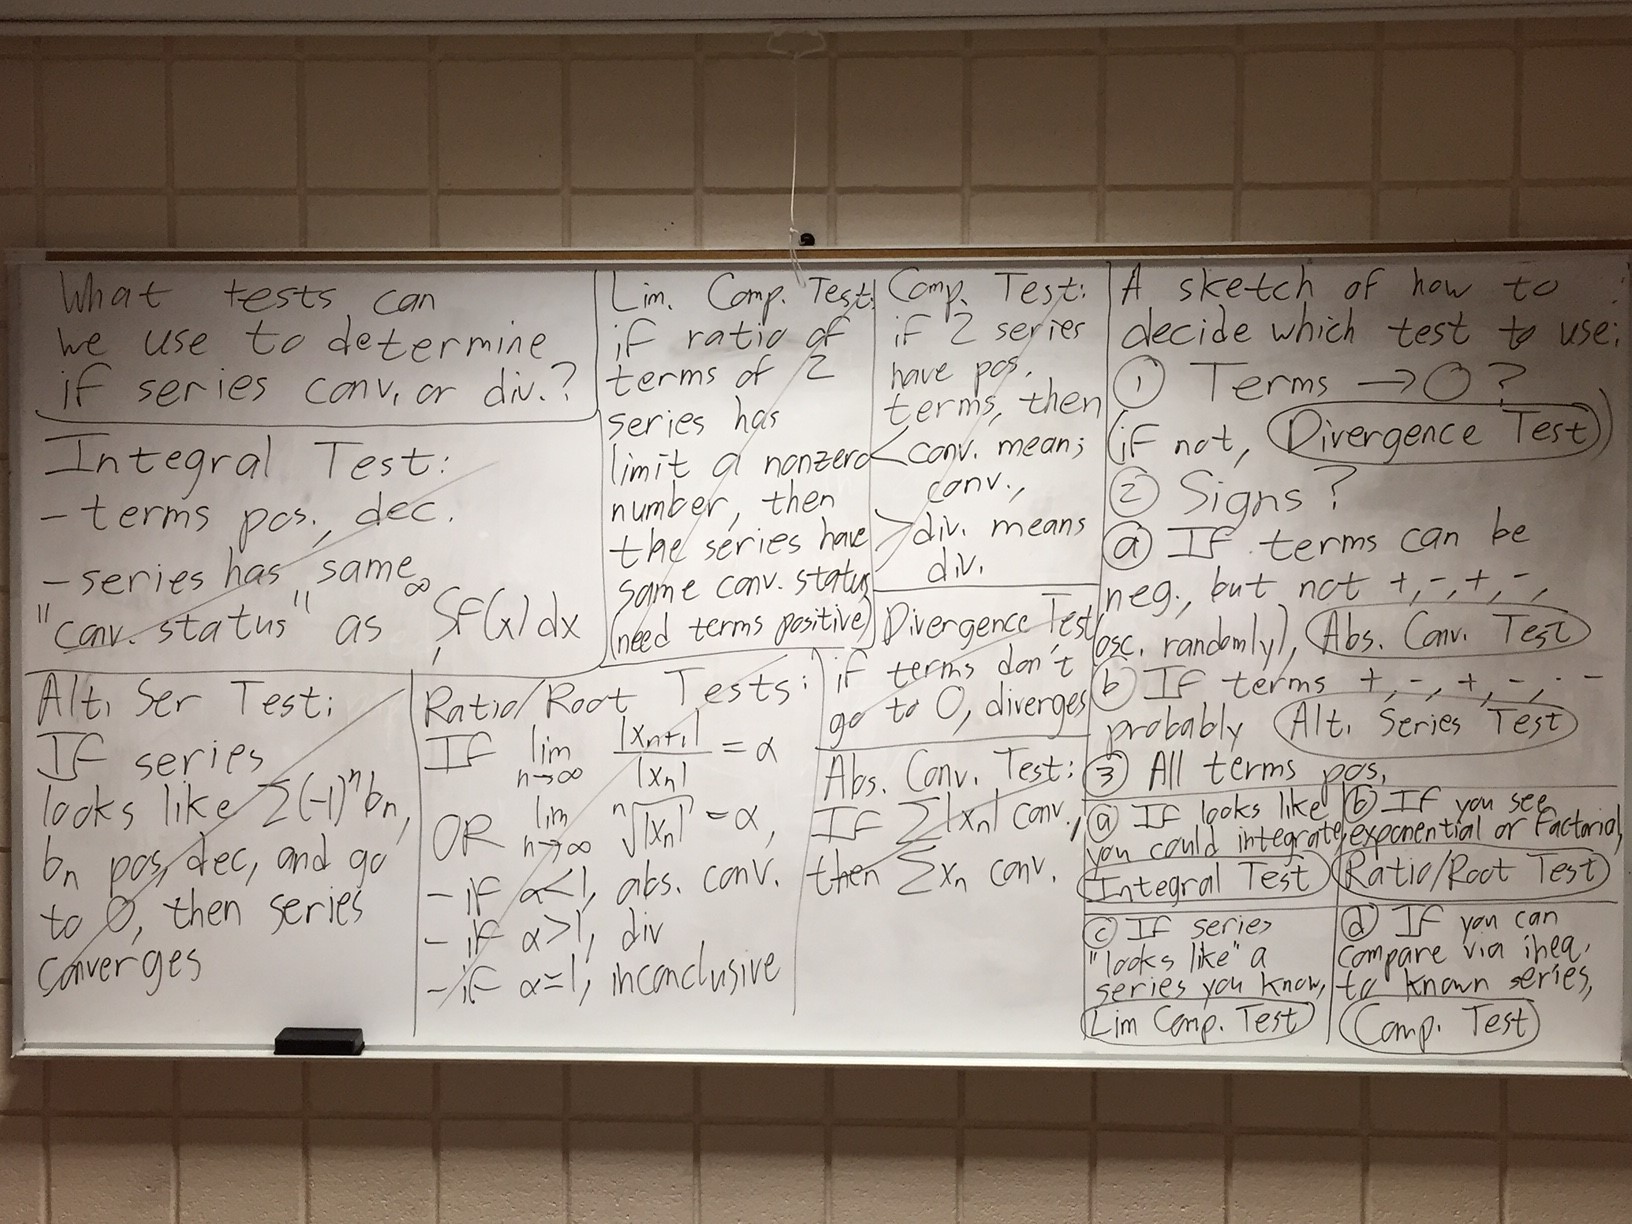 What tests can
we use to determine
if series conv. or div.?
Integral Test:
- terms pos., dec.
- series has same
"conv. status" as ∫₁^∞ f(x) dx
Alt. Ser Test:
If series
looks like Σ(-1)ⁿbₙ,
bₙ pos, dec, and go
to 0, then series
converges
Lim. Comp. Test:
if ratio of
terms of 2
series has
limit a nonzero
number, then
the series have
same conv. status
(need terms positive)
Comp. Test:
if 2 series
have pos.
terms, then
< conv. means
conv.,
> div. means
div.
Divergence Test
if terms don't
go to 0, diverges
Ratio/Root Tests:
If lim n→∞ |xₙ₊₁|/|xₙ| = α
OR lim n→∞ ⁿ√|xₙ| = α,
- if α<1, abs. conv.
- if α>1, div
- if α=1, inconclusive
Abs. Conv. Test:
If Σ|xₙ| conv.,
then Σxₙ conv.
A sketch of how to
decide which test to use:
① Terms → 0?
(if not, Divergence Test)
② Signs?
ⓐ If terms can be
neg., but not +,-,+,-,
(osc. randomly), Abs. Conv. Test
ⓑ If terms +,-,+,-,...
probably Alt. Series Test
③ All terms pos.
ⓐ If looks like
you could integrate,
Integral Test
ⓑ If you see
exponential or factorial,
Ratio/Root Test
ⓒ If series
"looks like" a
series you know,
Lim Comp. Test
ⓓ If you can
compare via ineq.
to known series,
Comp. Test